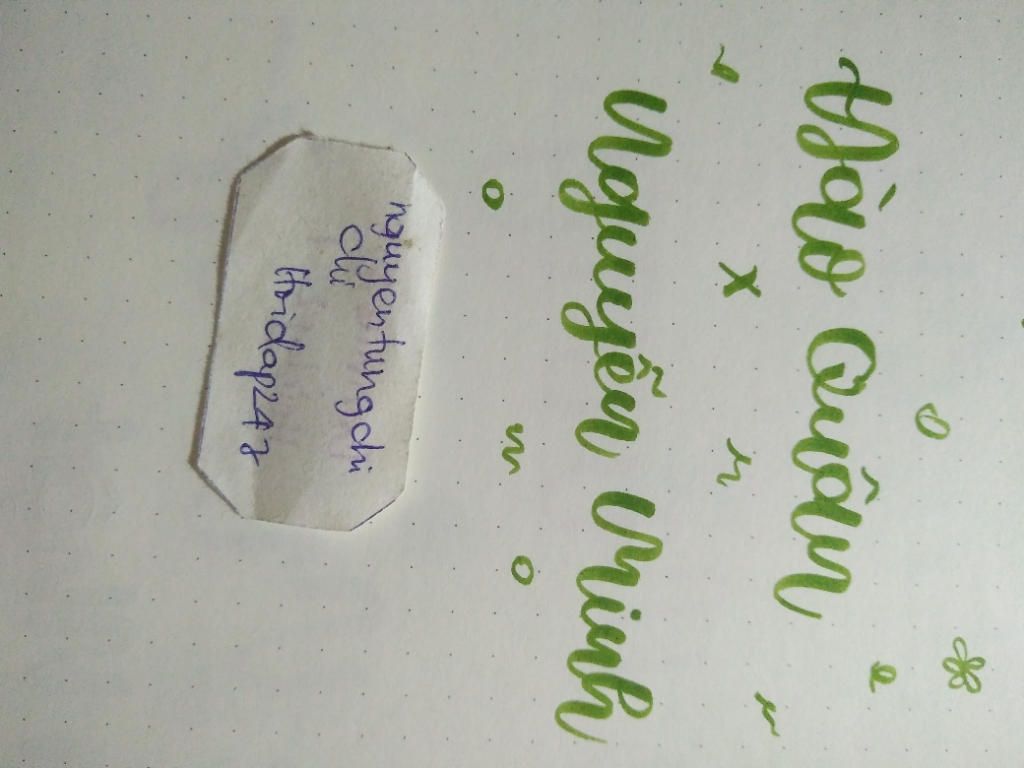 Đào Quân
x
Nguyễn Minh
nguyentungchi
chi
Hoidap247